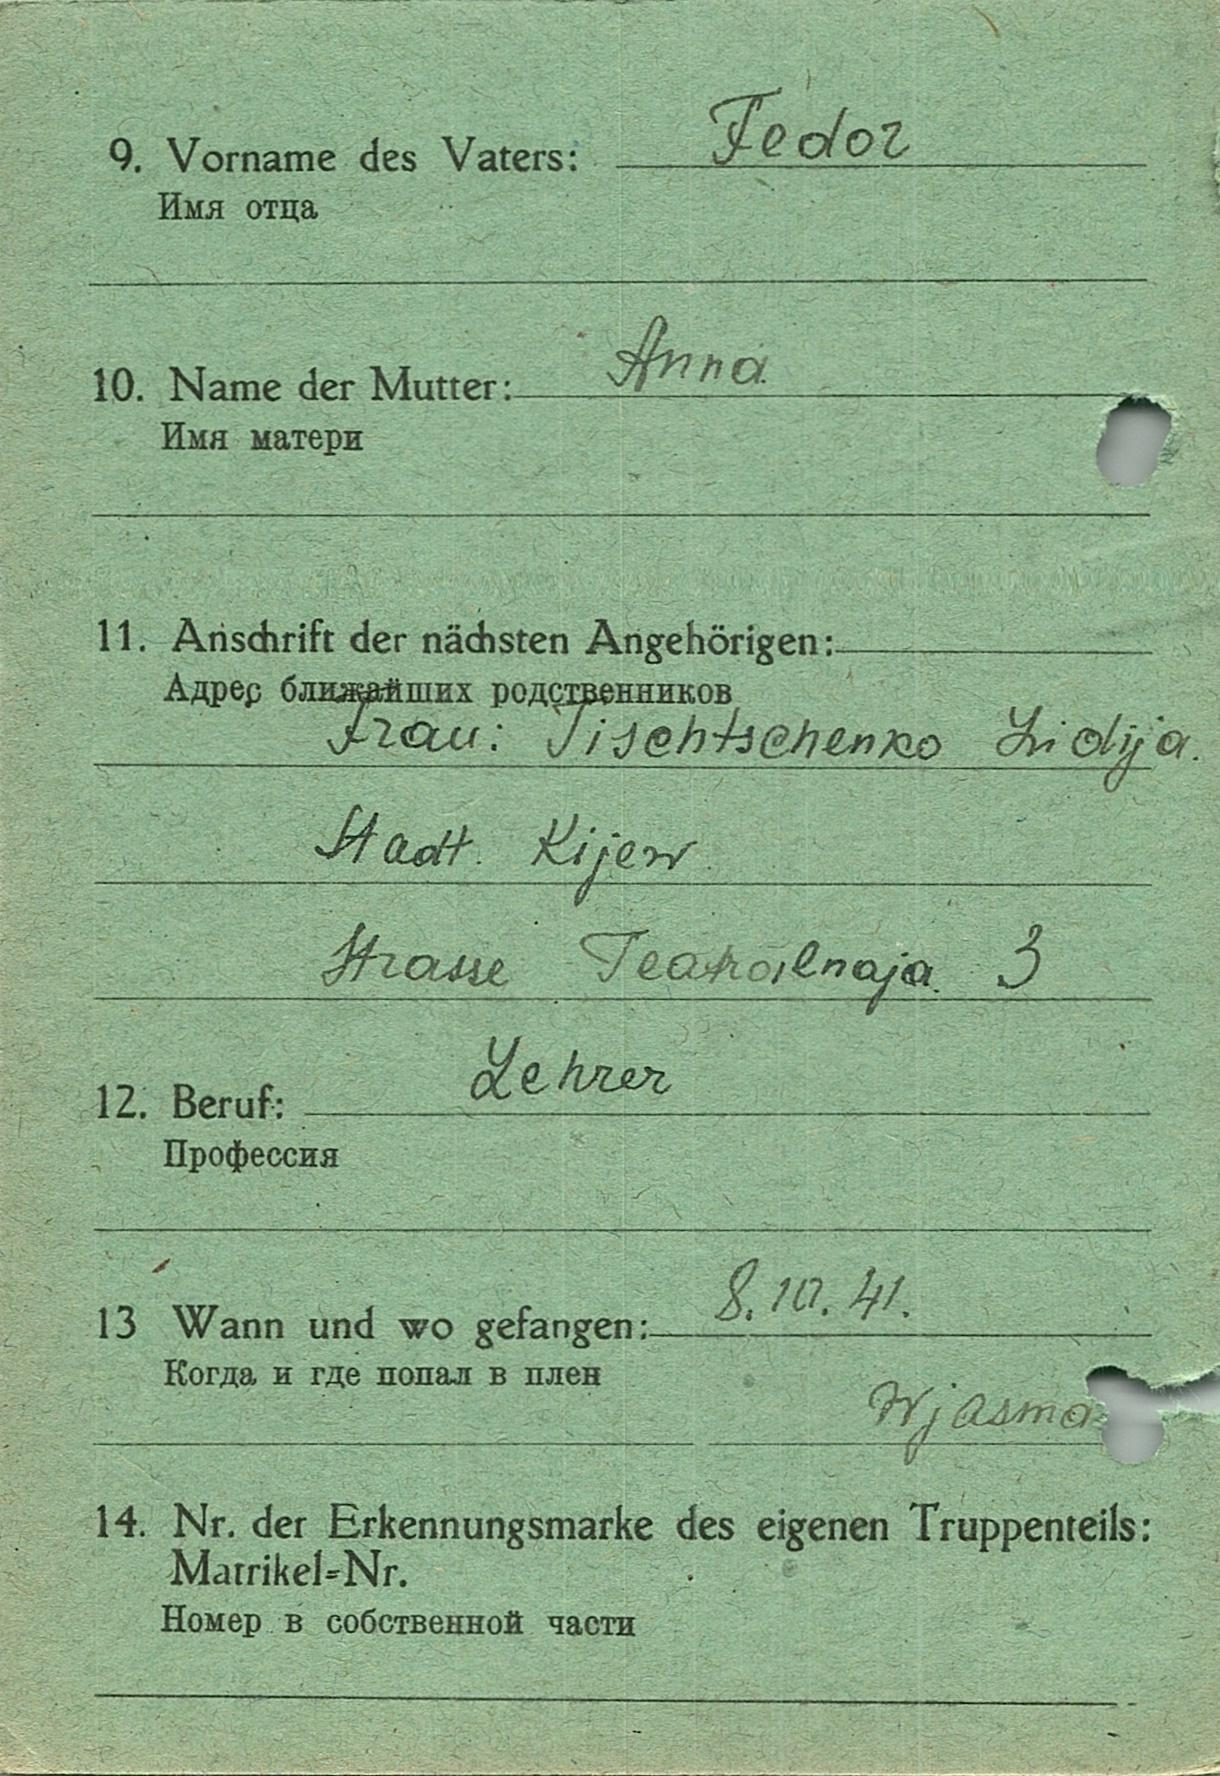 9. Vorname des Vaters: Fedor
Имя отца
10. Name der Mutter: Anna
Имя матери
11. Anschrift der nächsten Angehörigen:
Адрес ближайших родственников
Frau: Tischtschenko Lidija.
Stadt. Kijew
Strasse Teatralnaja. 3
12. Beruf: Lehrer
Профессия
13 Wann und wo gefangen: 8.10.41.
Когда и где попал в плен
Wjasma
14. Nr. der Erkennungsmarke des eigenen Truppenteils:
Matrikel=Nr.
Номер в собственной части